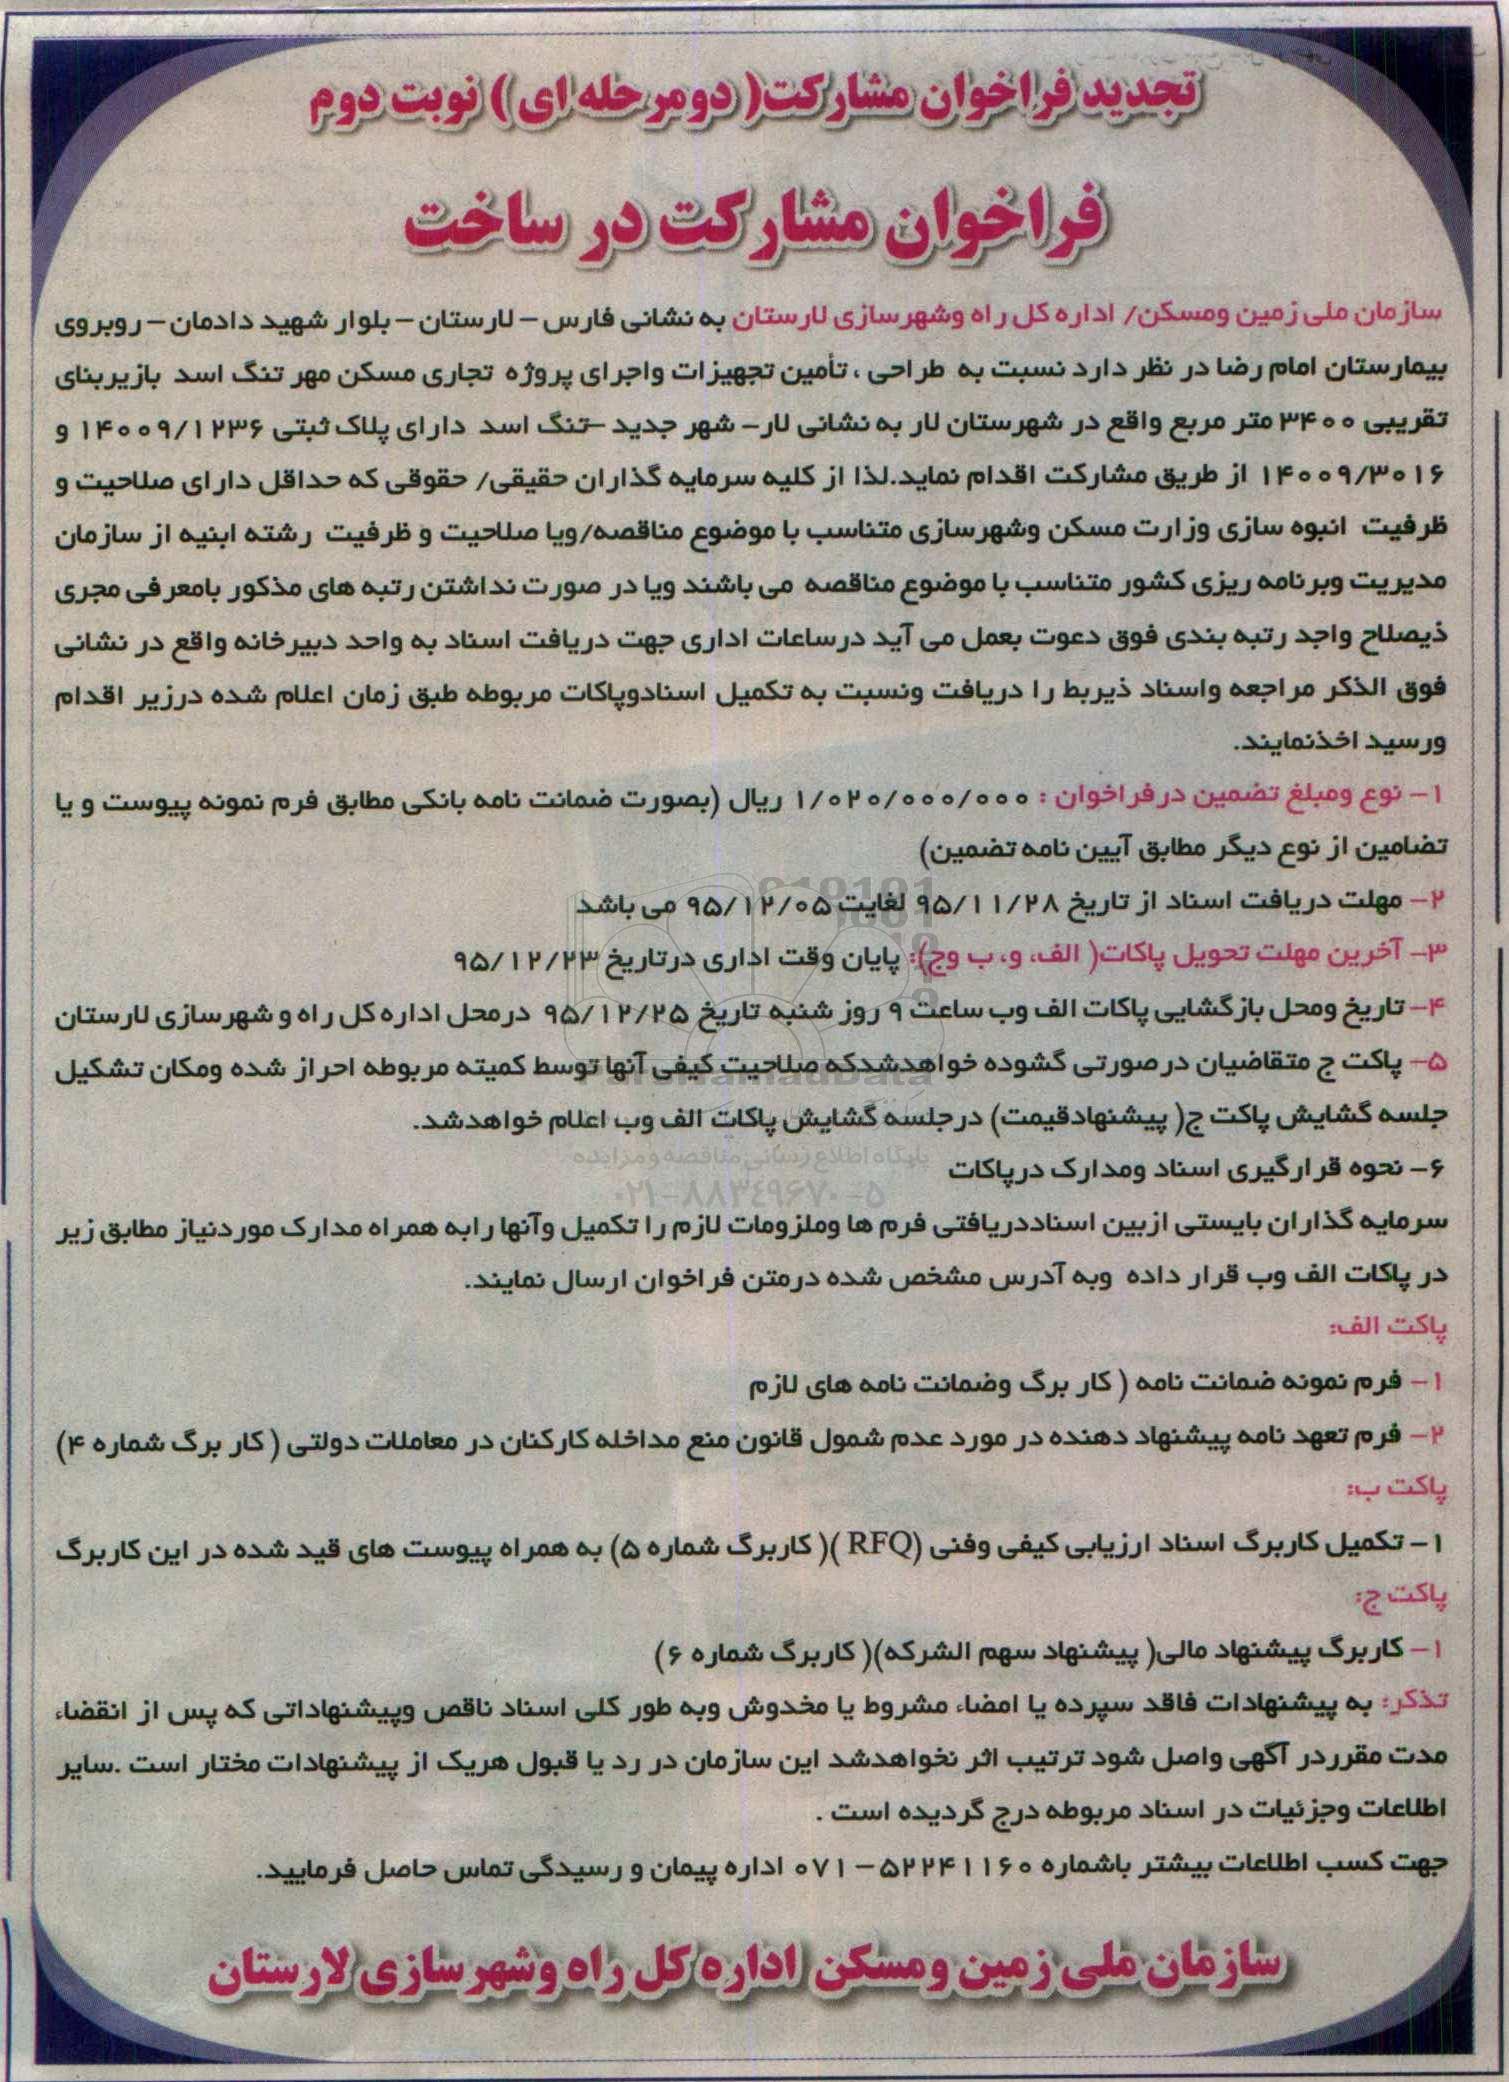 تجدید فراخوان مشارکت( دومرحله ای ) نوبت دوم
فراخوان مشارکت در ساخت
سازمان ملی زمین ومسکن/ اداره کل راه وشهرسازی لارستان به نشانی فارس – لارستان – بلوار شهید دادمان – روبروی
بیمارستان امام رضا در نظر دارد نسبت به طراحی ، تأمین تجهیزات واجرای پروژه تجاری مسکن مهر تنگ اسد بازیربنای
تقریبی ۳۴۰۰ متر مربع واقع در شهرستان لار به نشانی لار– شهر جدید –تنگ اسد دارای پلاک ثبتی ۱۴۰۰۹/۱۲۳۶ و
۱۴۰۰۹/۳۰۱۶ از طریق مشارکت اقدام نماید.لذا از کلیه سرمایه گذاران حقیقی/ حقوقی که حداقل دارای صلاحیت و
ظرفیت انبوه سازی وزارت مسکن وشهرسازی متناسب با موضوع مناقصه/ویا صلاحیت و ظرفیت رشته ابنیه از سازمان
مدیریت وبرنامه ریزی کشور متناسب با موضوع مناقصه می باشند ویا در صورت نداشتن رتبه های مذکور بامعرفی مجری
ذیصلاح واجد رتبه بندی فوق دعوت بعمل می آید درساعات اداری جهت دریافت اسناد به واحد دبیرخانه واقع در نشانی
فوق الذکر مراجعه واسناد ذیربط را دریافت ونسبت به تکمیل اسنادوپاکات مربوطه طبق زمان اعلام شده درزیر اقدام
ورسید اخذنمایند.
۱– نوع ومبلغ تضمین درفراخوان : ۱/۰۲۰/۰۰۰/۰۰۰ ریال (بصورت ضمانت نامه بانکی مطابق فرم نمونه پیوست و یا
تضامین از نوع دیگر مطابق آیین نامه تضمین)
۲– مهلت دریافت اسناد از تاریخ ۹۵/۱۱/۲۸ لغایت ۹۵/۱۲/۰۵ می باشد
۳– آخرین مهلت تحویل پاکات( الف، و، ب وج): پایان وقت اداری درتاریخ ۹۵/۱۲/۲۳
۴– تاریخ ومحل بازگشایی پاکات الف وب ساعت ۹ روز شنبه تاریخ ۹۵/۱۲/۲۵ درمحل اداره کل راه و شهرسازی لارستان
۵– پاکت ج متقاضیان درصورتی گشوده خواهدشدکه صلاحیت کیفی آنها توسط کمیته مربوطه احراز شده ومکان تشکیل
جلسه گشایش پاکت ج( پیشنهادقیمت) درجلسه گشایش پاکات الف وب اعلام خواهدشد.
پایگاه اطلاع رسانی مناقصه و مزایده
۶– نحوه قرارگیری اسناد ومدارک درپاکات
۰۲۱-۸۸۳۴۹۶۷۰-۵
سرمایه گذاران بایستی ازبین اسناددریافتی فرم ها وملزومات لازم را تکمیل وآنها رابه همراه مدارک موردنیاز مطابق زیر
در پاکات الف وب قرار داده وبه آدرس مشخص شده درمتن فراخوان ارسال نمایند.
پاکت الف:
۱– فرم نمونه ضمانت نامه ( کار برگ وضمانت نامه های لازم
۲– فرم تعهد نامه پیشنهاد دهنده در مورد عدم شمول قانون منع مداخله کارکنان در معاملات دولتی ( کار برگ شماره ۴)
پاکت ب:
۱– تکمیل کاربرگ اسناد ارزیابی کیفی وفنی (RFQ )( کاربرگ شماره ۵) به همراه پیوست های قید شده در این کاربرگ
پاکت ج:
۱– کاربرگ پیشنهاد مالی( پیشنهاد سهم الشرکه)( کاربرگ شماره ۶)
تذکر: به پیشنهادات فاقد سپرده یا امضاء مشروط یا مخدوش وبه طور کلی اسناد ناقص وپیشنهاداتی که پس از انقضاء
مدت مقرردر آگهی واصل شود ترتیب اثر نخواهدشد این سازمان در رد یا قبول هریک از پیشنهادات مختار است .سایر
اطلاعات وجزئیات در اسناد مربوطه درج گردیده است .
جهت کسب اطلاعات بیشتر باشماره ۵۲۲۴۱۱۶۰–۰۷۱ اداره پیمان و رسیدگی تماس حاصل فرمایید.
سازمان ملی زمین ومسکن اداره کل راه وشهرسازی لارستان